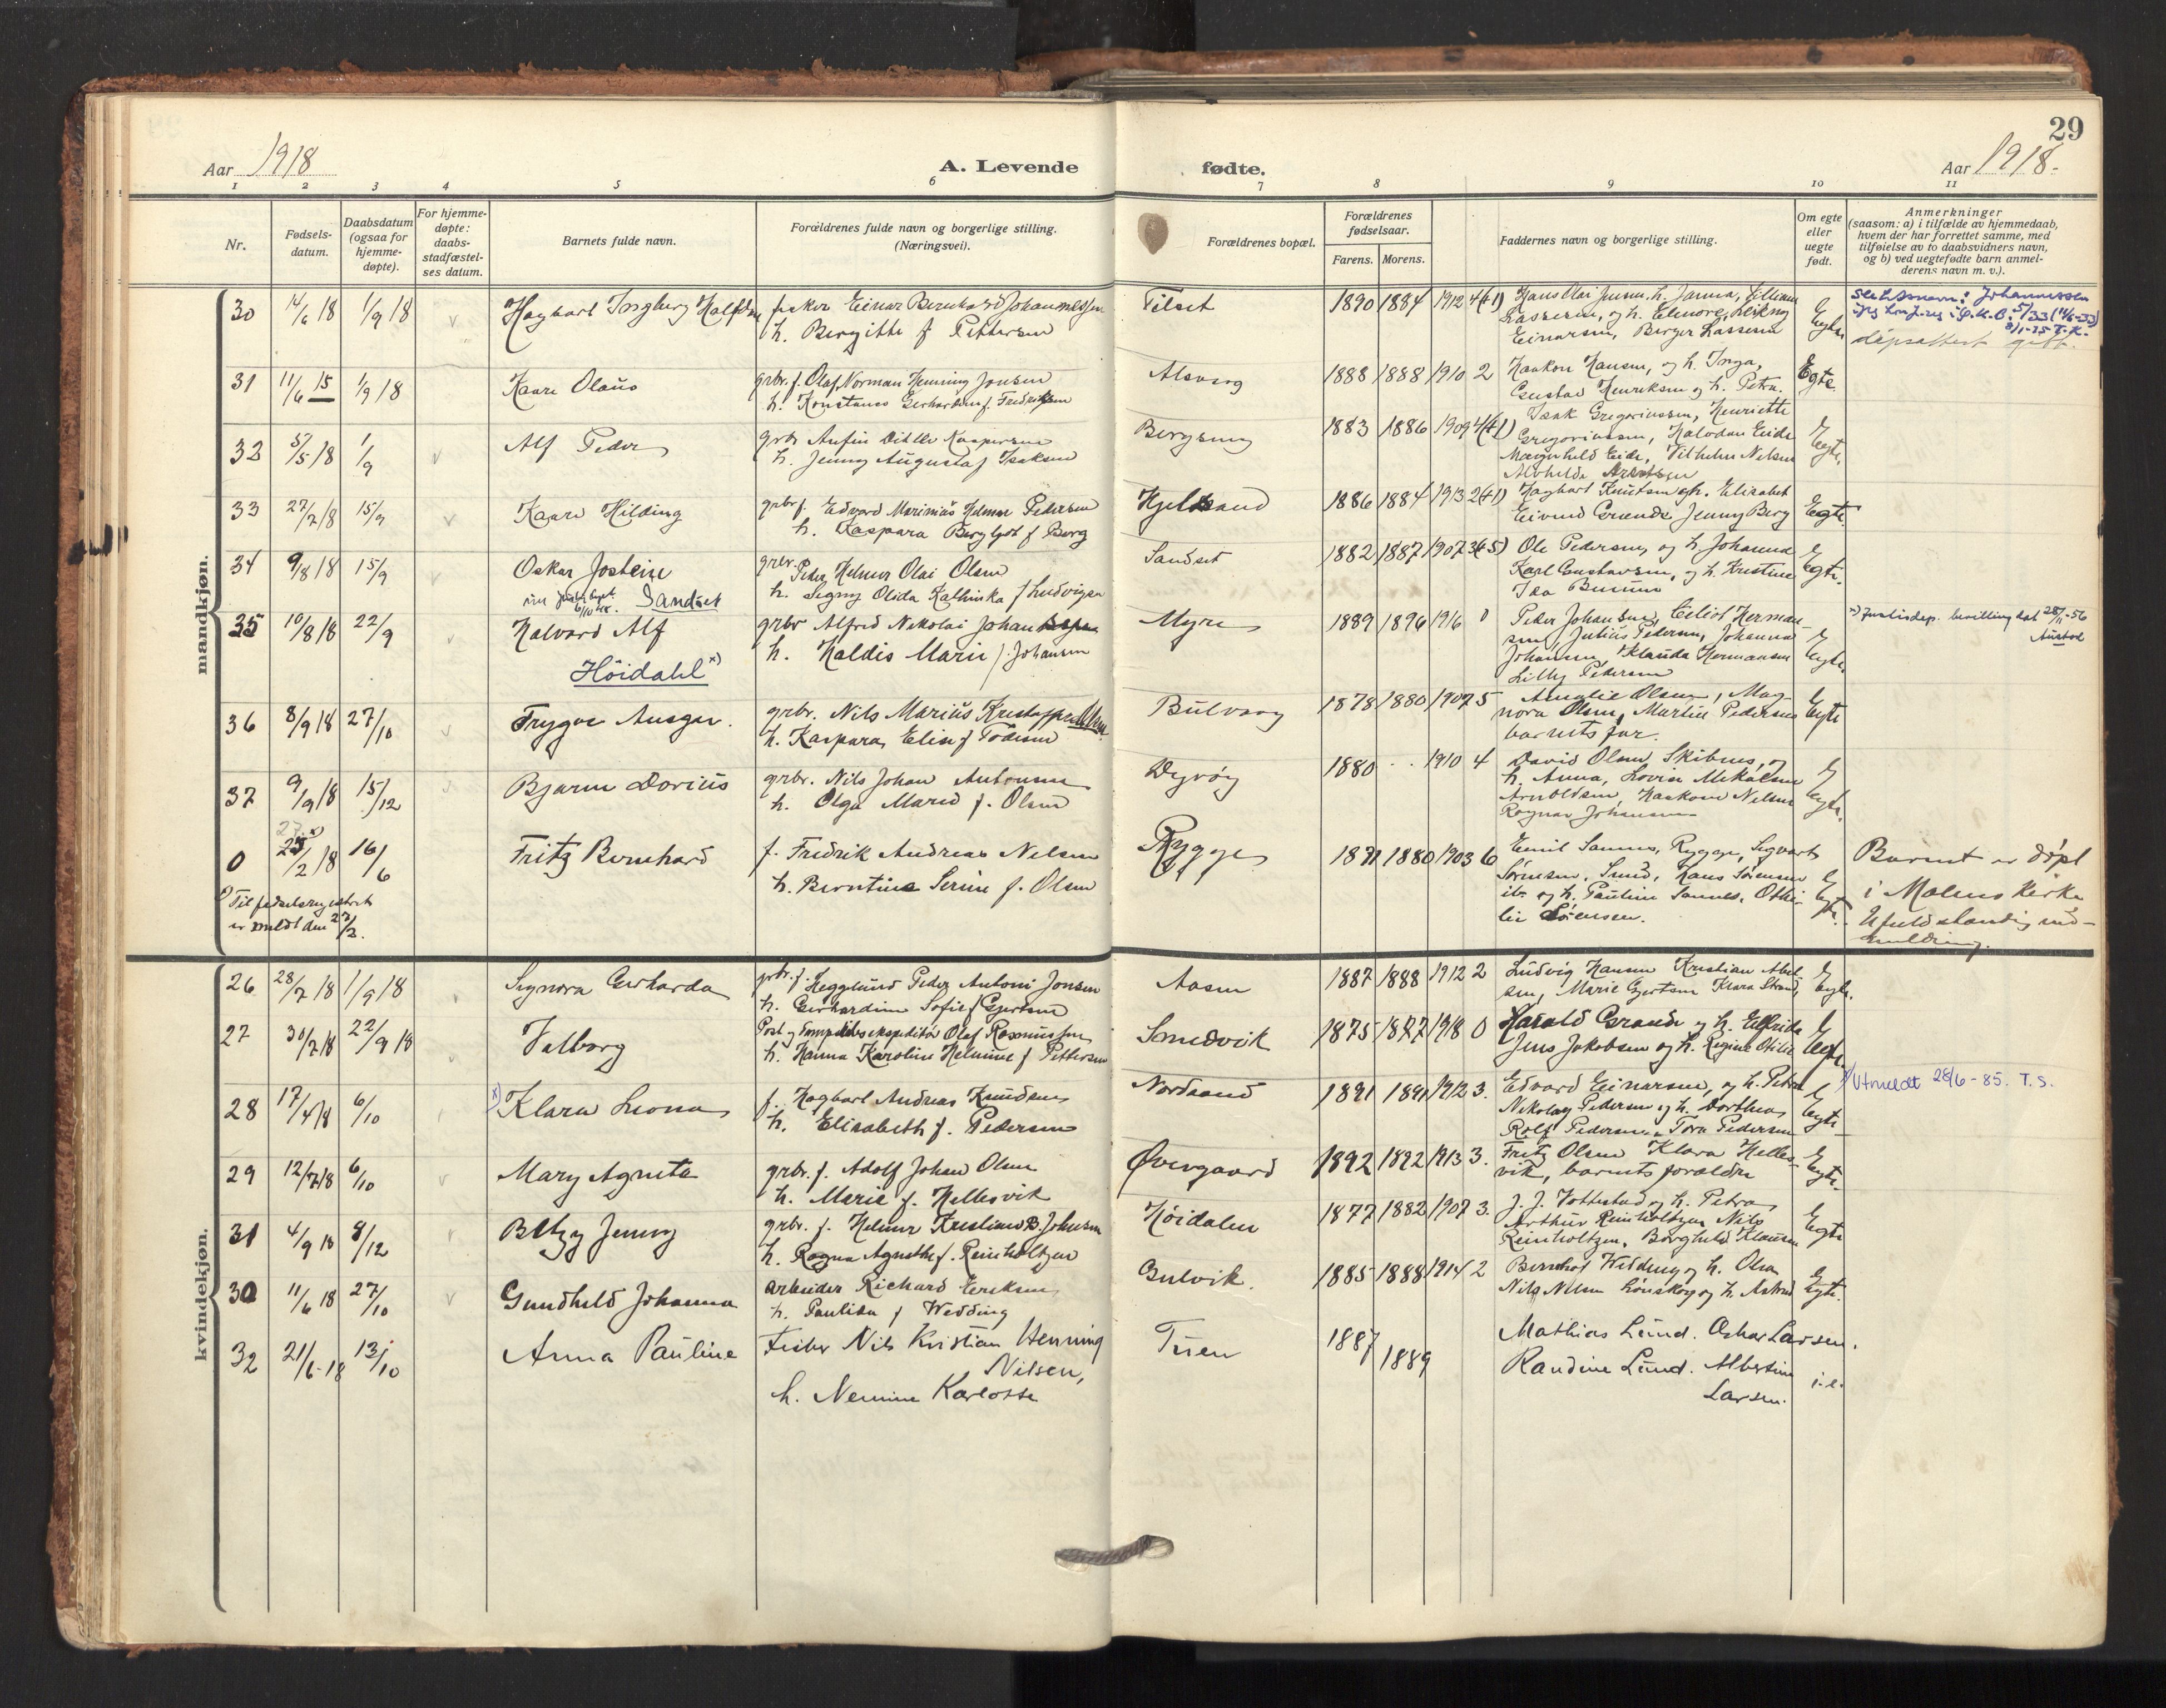 29
Aar 1918
A. Levende
fødte.
Aar 1918.
1 2 3 4 5 6 7 8 9 10 11
Nr.
Fødsels-
datum.
Daabsdatum
(ogsaa for
hjemme-
døpte).
For hjemme-
døpte:
daabs-
stadfæstel-
ses datum.
Barnets fulde navn.
Forældrenes fulde navn og borgerlige stilling.
(Næringsvei).
Forældrenes bopæl.
Forældrenes
fødselsaar.
Farens. Morens.
Faddernes navn og borgerlige stilling.
Om egte
eller
uegte
født.
Anmerkninger
(saasom: a) i tilfælde av hjemmedaab,
hvem der har forrettet samme, med
tilføielse av to daabsvidners navn,
og b) ved uegtefødte barn anmel-
derens navn m. v.).
mandkjøn.
30 14/6 18 1/9 18 Hagbart Ingberg Halfdan
fisker Einar Bernhard Johannessen
h. Bergitte f Pettersen
Tilset 1890 1884 1912 4(+1)
Hans Olai Jensen, h. Janna,
Lasseren, og h. Elenore,
Einarsen, Berger Lassesen
Egte.
slektsnavn: Johannessen
dåpsattest
31 11/6 15 1/9 18 Kaare Olaus
grbr. f. Olaf Norman Henning Jonsen
h. Konstance Gerhardine f. Fredriksen
Alsvaag 1888 1888 1910 2
Haakon Hansen, og h. Inga,
Gustav Henriksen og h. Petra.
Egte.
32 5/5 18 1/9 Alf Peder
grbr Anfin Ditlev Kaspersen
h. Jenny Augusta f Isaksen
1883 1886 1909 4(+1)
Isak Gregoriussen, Henriette
Gregoriussen, Halvdan Eide
Magnhild Eide, Vilhelm Nelsen
Alvhilde
Egte.
33 27/7 18 15/9 Kaare Hilding
grbr f. Edvard Marinius Helmer Pedersen
h. Kaspara Bergljot f Berg
1886 1884 1913 2(+1)
Hagbart Knutsen og h. Elisabet
Eivind Jenny Berg
Egte.
34 9/8 18 15/9 Oskar Jostein
Sandset
grbr Peder Helmer Olai Olsen
h. Signy Olida Kathinka f Ludvigsen
Sandset 1882 1887 1907 3(+5)
Ole Pedersen, og h Johanna
Karl Gustavsen, og h. Kristine
Ida
Egte.
35 10/8 18 22/9 Halvard Alf
Höidahl x)
grbr Alfred Nikolai Johan
h. Haldis Marie f. Johansen
Myre 1889 1896 1916 0
Peder Johansen, Hermansen,
Julius Pedersen, Johanna
Johansen, Klauda Hermansen
Lilly Pedersen
Egte.
x) Justisdep. bevilling dat 28/11-56
36 8/9 18 27/10 Trygve Ansgar.
grbr. Nils Marius Kristoffer Olsen
h. Kaspara Elise f Todesen
Bulvaag 1878 1880 1907 5
Amalie Olsen, Mag-
nora Olsen, Martin Pedersen
barnets far.
Egte
37 9/9 18 15/12 Bjarne Dorius
grbr. Nils Johan Antonsen
h. Olga Marie f. Olsen
Dyrøy 1880 . . 1910 4
David Olsen Skibnes, og
h. Anna, Lovise Mikalsen
Arnoldsen, Haakon Nelsen
Ragnar Johansen
Egte.
0 25/2 18 16/6 Fritz Bernhard
f. Fredrik Andreas Nelsen
h. Berntine Serine f. Olsen
Rygge 1871 1880 1903 6
Emil Sannes, Rygge, Sigvart
Sørensen, Sund, Hans Sørensen
ib. og h. Pauline Sannes, Othi-
lie Sørensen.
Egte.
Barnet er døpt
i Malnes kirke
Ufuldstændig ind-
meldning.
x) Til fødselsregistret
er meldt den 27/2.
kvindekjøn.
26 28/7 18 1/9 18 Signora Gerharda
grbr. f. Hegglund Peder Antoni Jonsen
h. Gerhardine Sofie f Gjertsen
Aasen 1887 1888 1912 2
Ludvig Hansen Kristian Abel-
sen, Marie Gjertsen Klara Strand,
Egte.
27 30/7 18 22/9 18 Valborg
Post og Dampskibsekspeditør Olaf Rasmussen
h. Hanna Karoline Helmine f Pettersen
Smedvik 1875 1877 1918 0
Harald Grande og h. Elfrida
Jens Jakobsen og h. Regine Otilie
Egte.
28 17/4 18 6/10 x) Klara Leona
f. Hagbart Andreas Knudsen
h. Elisabeth f. Pedersen
Nordsand 1891 1891 1912 3.
Edvard Einarsen, og h. Petra
Nikolay Pedersen og h. Dorthea
Rolf Pedersen, Tora Pedersen
Egte.
x) Utmeldt 28/6-85. T.S.
29 12/7 18 6/10 Mary Agneta
grbr. f. Adolf Johan Olsen
h. Marie f. Hellesvik
Øvergaard 1892 1892 1913 3.
Fritz Olsen Klara Helles-
vik, barnets forældre
Egte.
31 4/9 18 8/12 Betzy Jenny
grbr. f. Helmer Kristian B. Johnsen
h. Ragna Agnethe f. Reinholtzen
Høidalen 1877 1882 1907 3.
J. J. Vottestad og h. Petra
Arthur Reinholtzen Nils
Reinholtzen, Borghild Klausen
Egte
30 11/6 18 27/10 Gundhild Johanna
Arbeider Richard Eriksen
h. Paulida f Wedding
Gulvik. 1885 1888 1914 2
Bernhof Wedding og h. Olea
Nils Nelsen Lønskog og h. Astrid
Egte.
32 21/6-18 13/10 Anna Pauline
Fisker Nils Kristian Henning
Nilsen,
h. Nemine Karlotte
Tuen 1887 1889
Mathias Lund. Oskar Larsen.
Randine Lund. Albertine
Larsen.